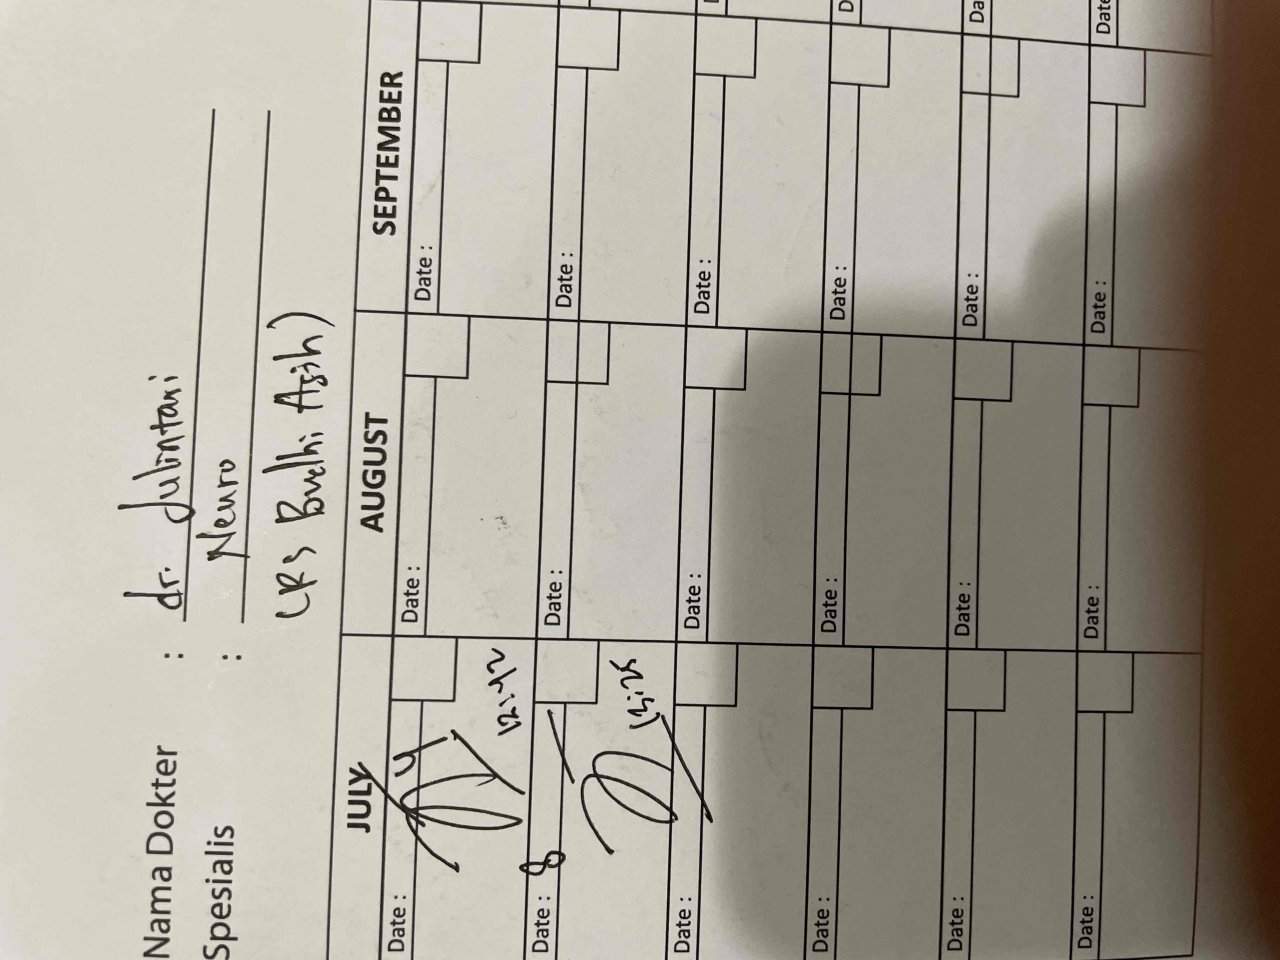 Nama Dokter : dr. Julintari
Spesialis : Neuro
(RS Budhi Asih)
JULY AUGUST SEPTEMBER
Date : 4 Date : Date : Da
12:42
Date : 8 Date : Date :
13:25
Date : Date : Date :
Date : Date : Date : D
Date : Date : Date : Da
Date : Date : Date : Date